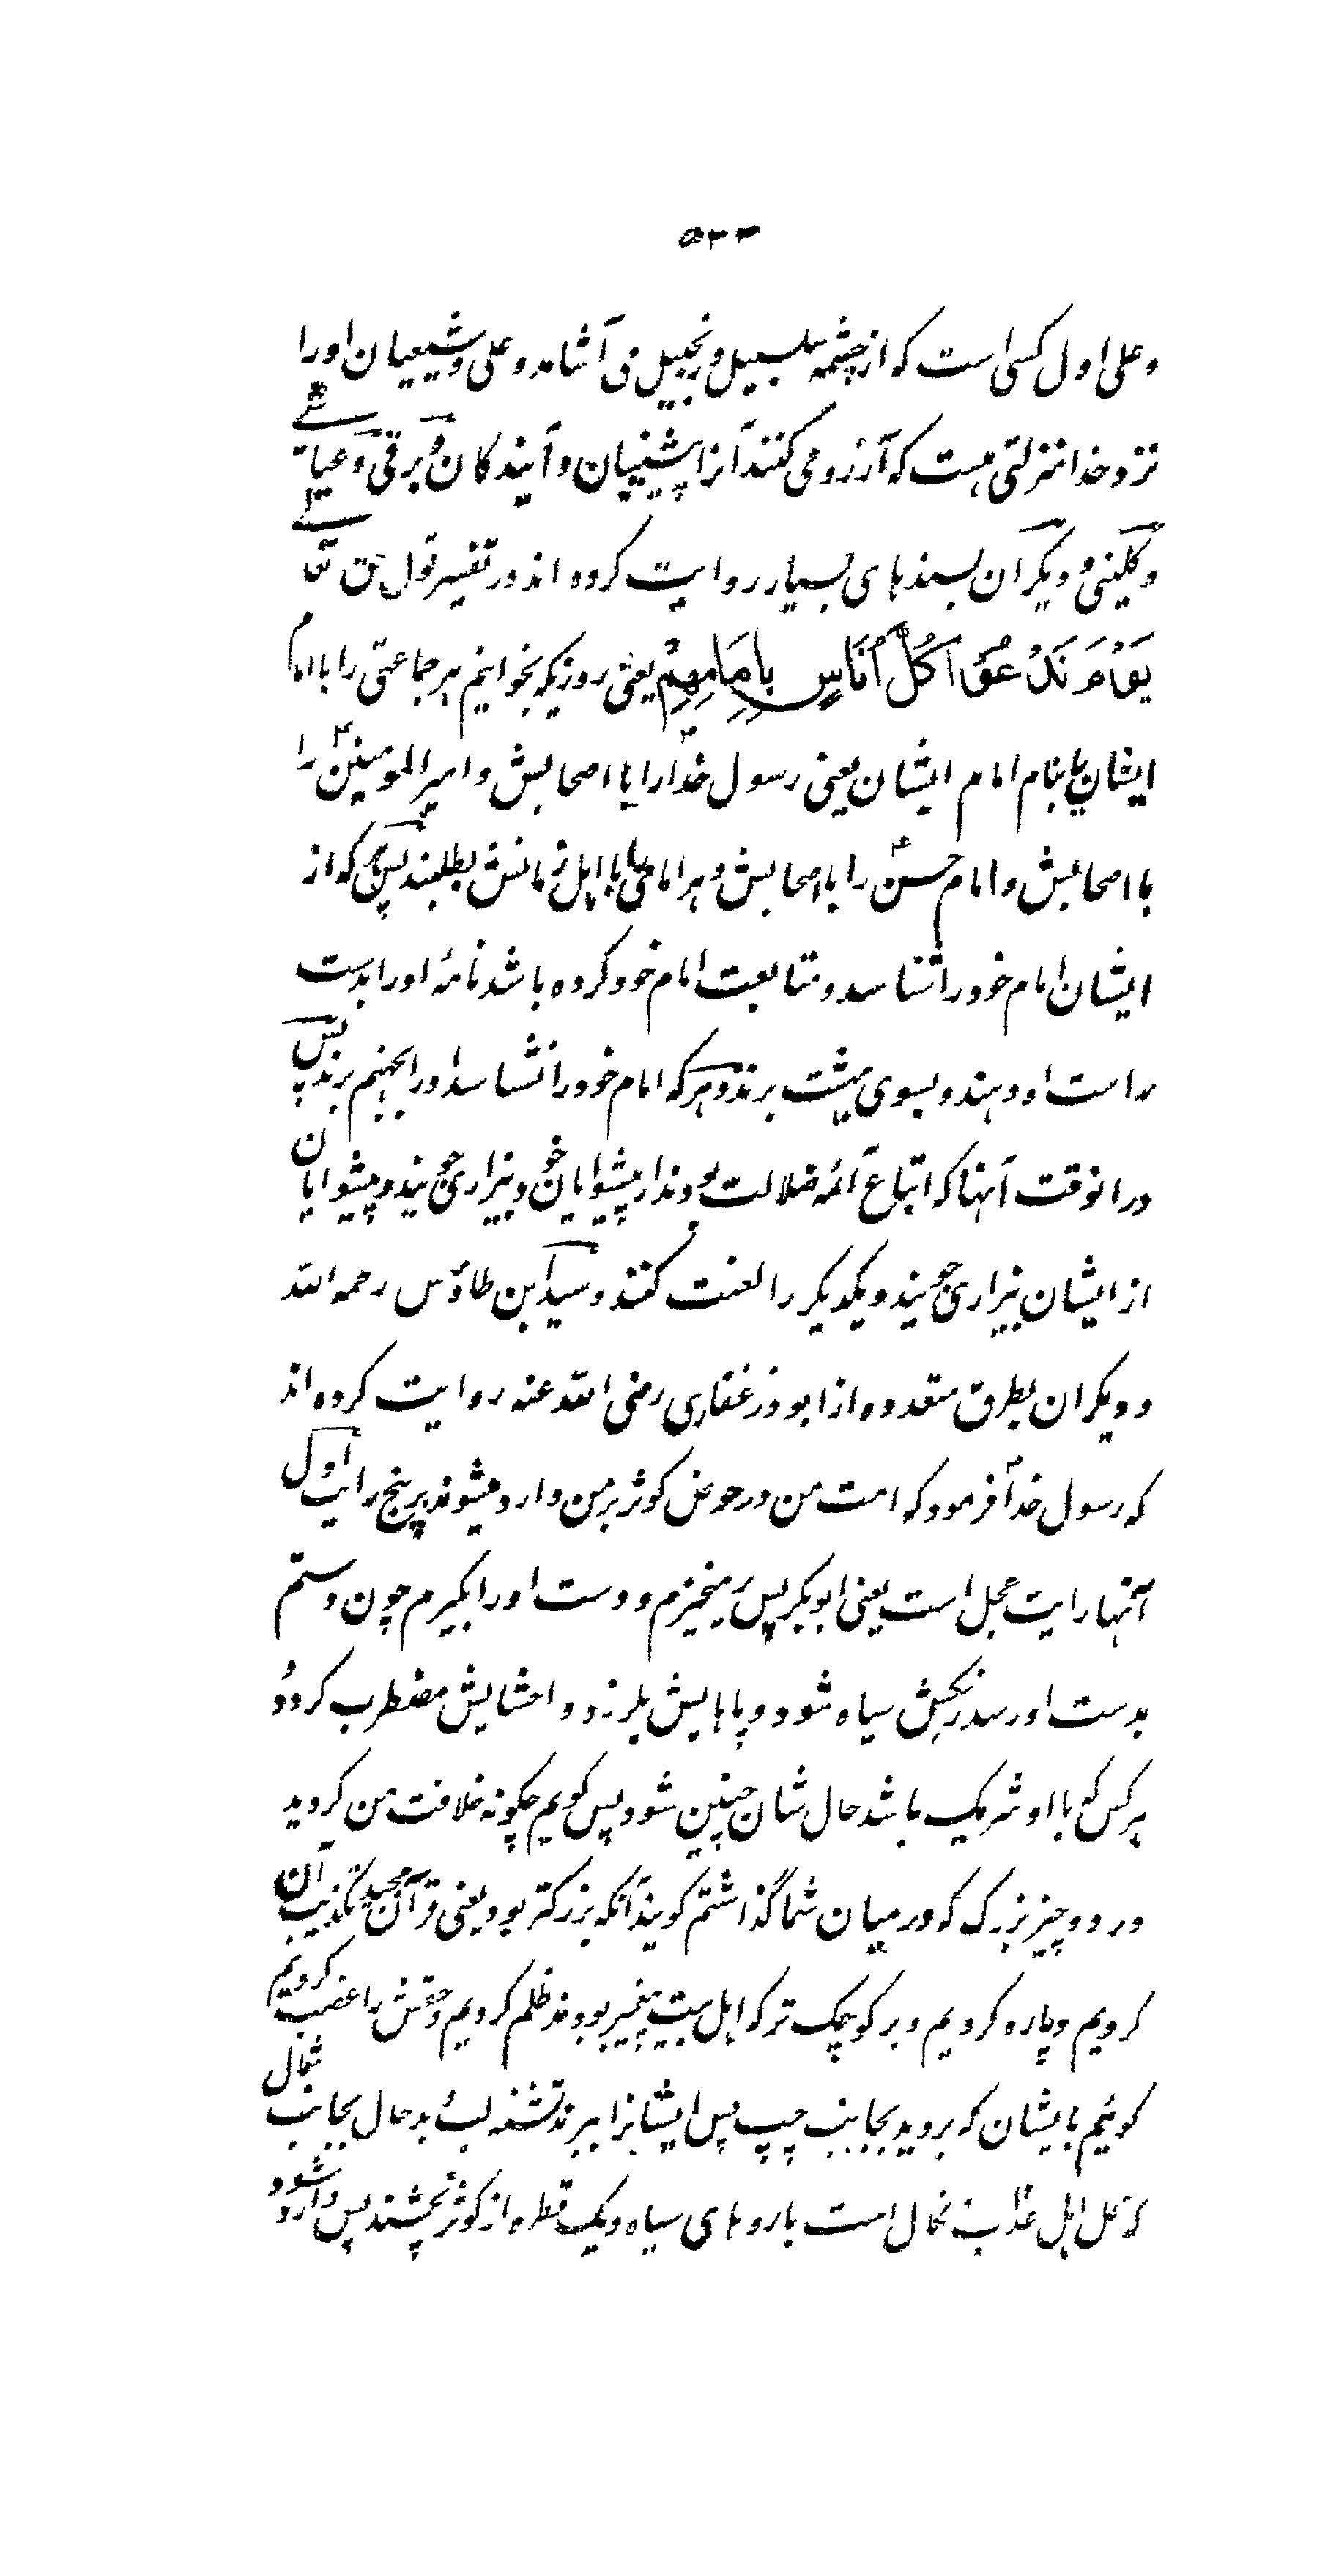 وعلی اول کسی است که از چشمه سلسبیل و زنجبیل می آشامد و علی و شیعیان او را
نزد خدا منزلتی هست که آرزو می کنند آنرا پیشینیان و آیندگان و برقی و عیاشی
و کلینی و دیگران بسندهای بسیار روایت کرده اند در تفسیر قول حق تعالی
یَوْمَ نَدْعُوا کُلَّ اُنَاسٍ بِاِمَامِهِمْ یعنی روزیکه بخوانیم هر جماعتی را با امام
ایشان یا بنام امام ایشان یعنی رسول خدا را با اصحابش و امیرالمومنین را
با اصحابش و امام حسن را با اصحابش و هر امامی را با اهل زمانش بطلبند پس هر که از
ایشان امام خود را شناسد و متابعت امام خود کرده باشد نامهٔ او را بدست
راست او دهند و بسوی بهشت برند و هر که امام خود را نشناسد او را بجهنم برند پس
در انوقت آنها که اتباع آئمه ضلالت بودند از پیشوایان خود بیزاری جویند و پیشوایان
از ایشان بیزاری جویند و یکدیگر را لعنت کنند و سید ابن طاوٗس رحمه الله
و دیگران بطرق متعدده از ابوذر غفاری رضی الله عنه روایت کرده اند
که رسول خدا فرمود که امت من در حوض کوثر بر من وارد میشوند بر پنج رایت اول
آنها رایت عجل است یعنی ابوبکر پس برمیخیزم و دست او را بگیرم چون دستم
بدست او رسد رنگش سیاه شود و پاهایش بلرزد و احشایش مضطرب گردد و
هر کس که با او شریک باشد حال شان چنین شود پس گویم چگونه خلافت من کردید
در دو چیز بزرگ که در میان شما گذاشتم گویند آنکه بزرگتر بود یعنی قرآن مجید تکذیب آن
کردیم و پاره کردیم و بر کوچک تر که اهل بیت پیغمبر بودند ظلم کردیم و حقش را غصب کردیم
گویم بایشان که بروید بجانب چپ پس ایشانرا ببرند تشنه لب بد حال بجانب شمال
که محل اهل عذاب نکال است با روهای سیاه و یک قطره از کوثر نچشند پس وارد شود